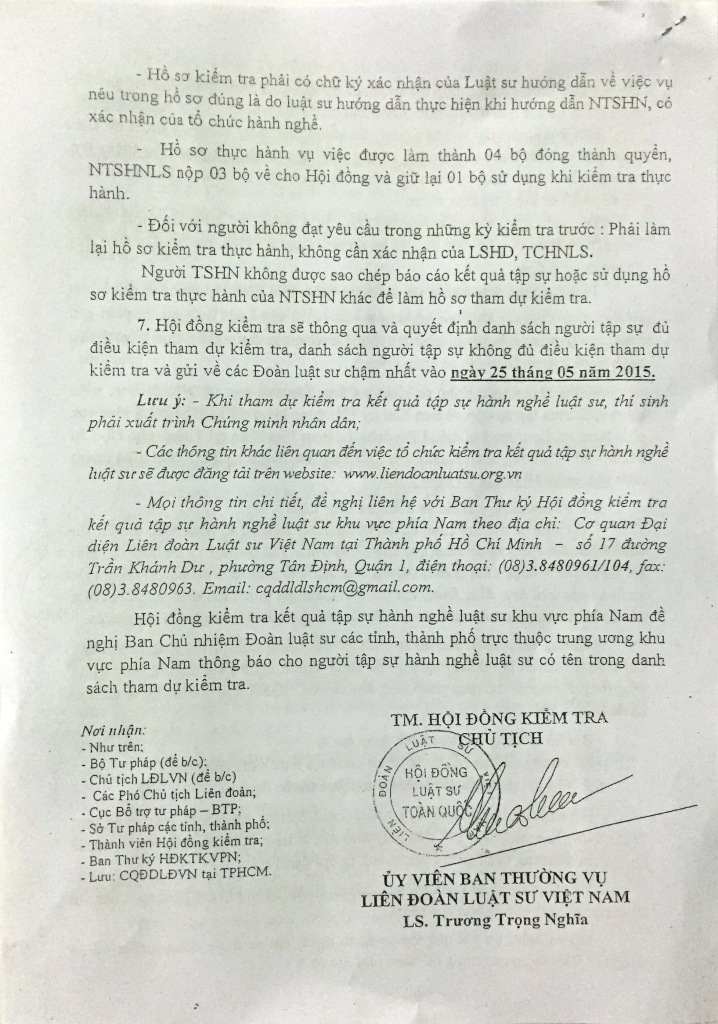 - Hồ sơ kiểm tra phải có chữ ký xác nhận của Luật sư hướng dẫn về việc vụ
nêu trong hồ sơ đúng là do luật sư hướng dẫn thực hiện khi hướng dẫn NTSHN, có
xác nhận của tổ chức hành nghề.
- Hồ sơ thực hành vụ việc được làm thành 04 bộ đóng thành quyển,
NTSHNLS nộp 03 bộ về cho Hội đồng và giữ lại 01 bộ sử dụng khi kiểm tra thực
hành.
- Đối với người không đạt yêu cầu trong những kỳ kiểm tra trước : Phải làm
lại hồ sơ kiểm tra thực hành, không cần xác nhận của LSHD, TCHNLS.
Người TSHN không được sao chép báo cáo kết quả tập sự hoặc sử dụng hồ
sơ kiểm tra thực hành của NTSHN khác để làm hồ sơ tham dự kiểm tra.
7. Hội đồng kiểm tra sẽ thông qua và quyết định danh sách người tập sự đủ
điều kiện tham dự kiểm tra, danh sách người tập sự không đủ điều kiện tham dự
kiểm tra và gửi về các Đoàn luật sư chậm nhất vào ngày 25 tháng 05 năm 2015.
Lưu ý: - Khi tham dự kiểm tra kết quả tập sự hành nghề luật sư, thí sinh
phải xuất trình Chứng minh nhân dân;
- Các thông tin khác liên quan đến việc tổ chức kiểm tra kết quả tập sự hành nghề
luật sư sẽ được đăng tải trên website: www.liendoanluatsu.org.vn
- Mọi thông tin chi tiết, đề nghị liên hệ với Ban Thư ký Hội đồng kiểm tra
kết quả tập sự hành nghề luật sư khu vực phía Nam theo địa chỉ: Cơ quan Đại
diện Liên đoàn Luật sư Việt Nam tại Thành phố Hồ Chí Minh – số 17 đường
Trần Khánh Dư , phường Tân Định, Quận 1, điện thoại: (08)3.8480961/104, fax:
(08)3.8480963. Email: cqddldlshcm@gmail.com.
Hội đồng kiểm tra kết quả tập sự hành nghề luật sư khu vực phía Nam đề
nghị Ban Chủ nhiệm Đoàn luật sư các tỉnh, thành phố trực thuộc trung ương khu
vực phía Nam thông báo cho người tập sự hành nghề luật sư có tên trong danh
sách tham dự kiểm tra.
Nơi nhận:
- Như trên;
- Bộ Tư pháp (để b/c);
- Chủ tịch LĐLVN (để b/c)
- Các Phó Chủ tịch Liên đoàn;
- Cục Bổ trợ tư pháp – BTP;
- Sở Tư pháp các tỉnh, thành phố;
- Thành viên Hội đồng kiểm tra;
- Ban Thư ký HĐKTKVPN;
- Lưu: CQĐDLĐVN tại TPHCM.
TM. HỘI ĐỒNG KIỂM TRA
CHỦ TỊCH
LIÊN ĐOÀN LUẬT SƯ
HỘI ĐỒNG
LUẬT SƯ
TOÀN QUỐC
ỦY VIÊN BAN THƯỜNG VỤ
LIÊN ĐOÀN LUẬT SƯ VIỆT NAM
LS. Trương Trọng Nghĩa